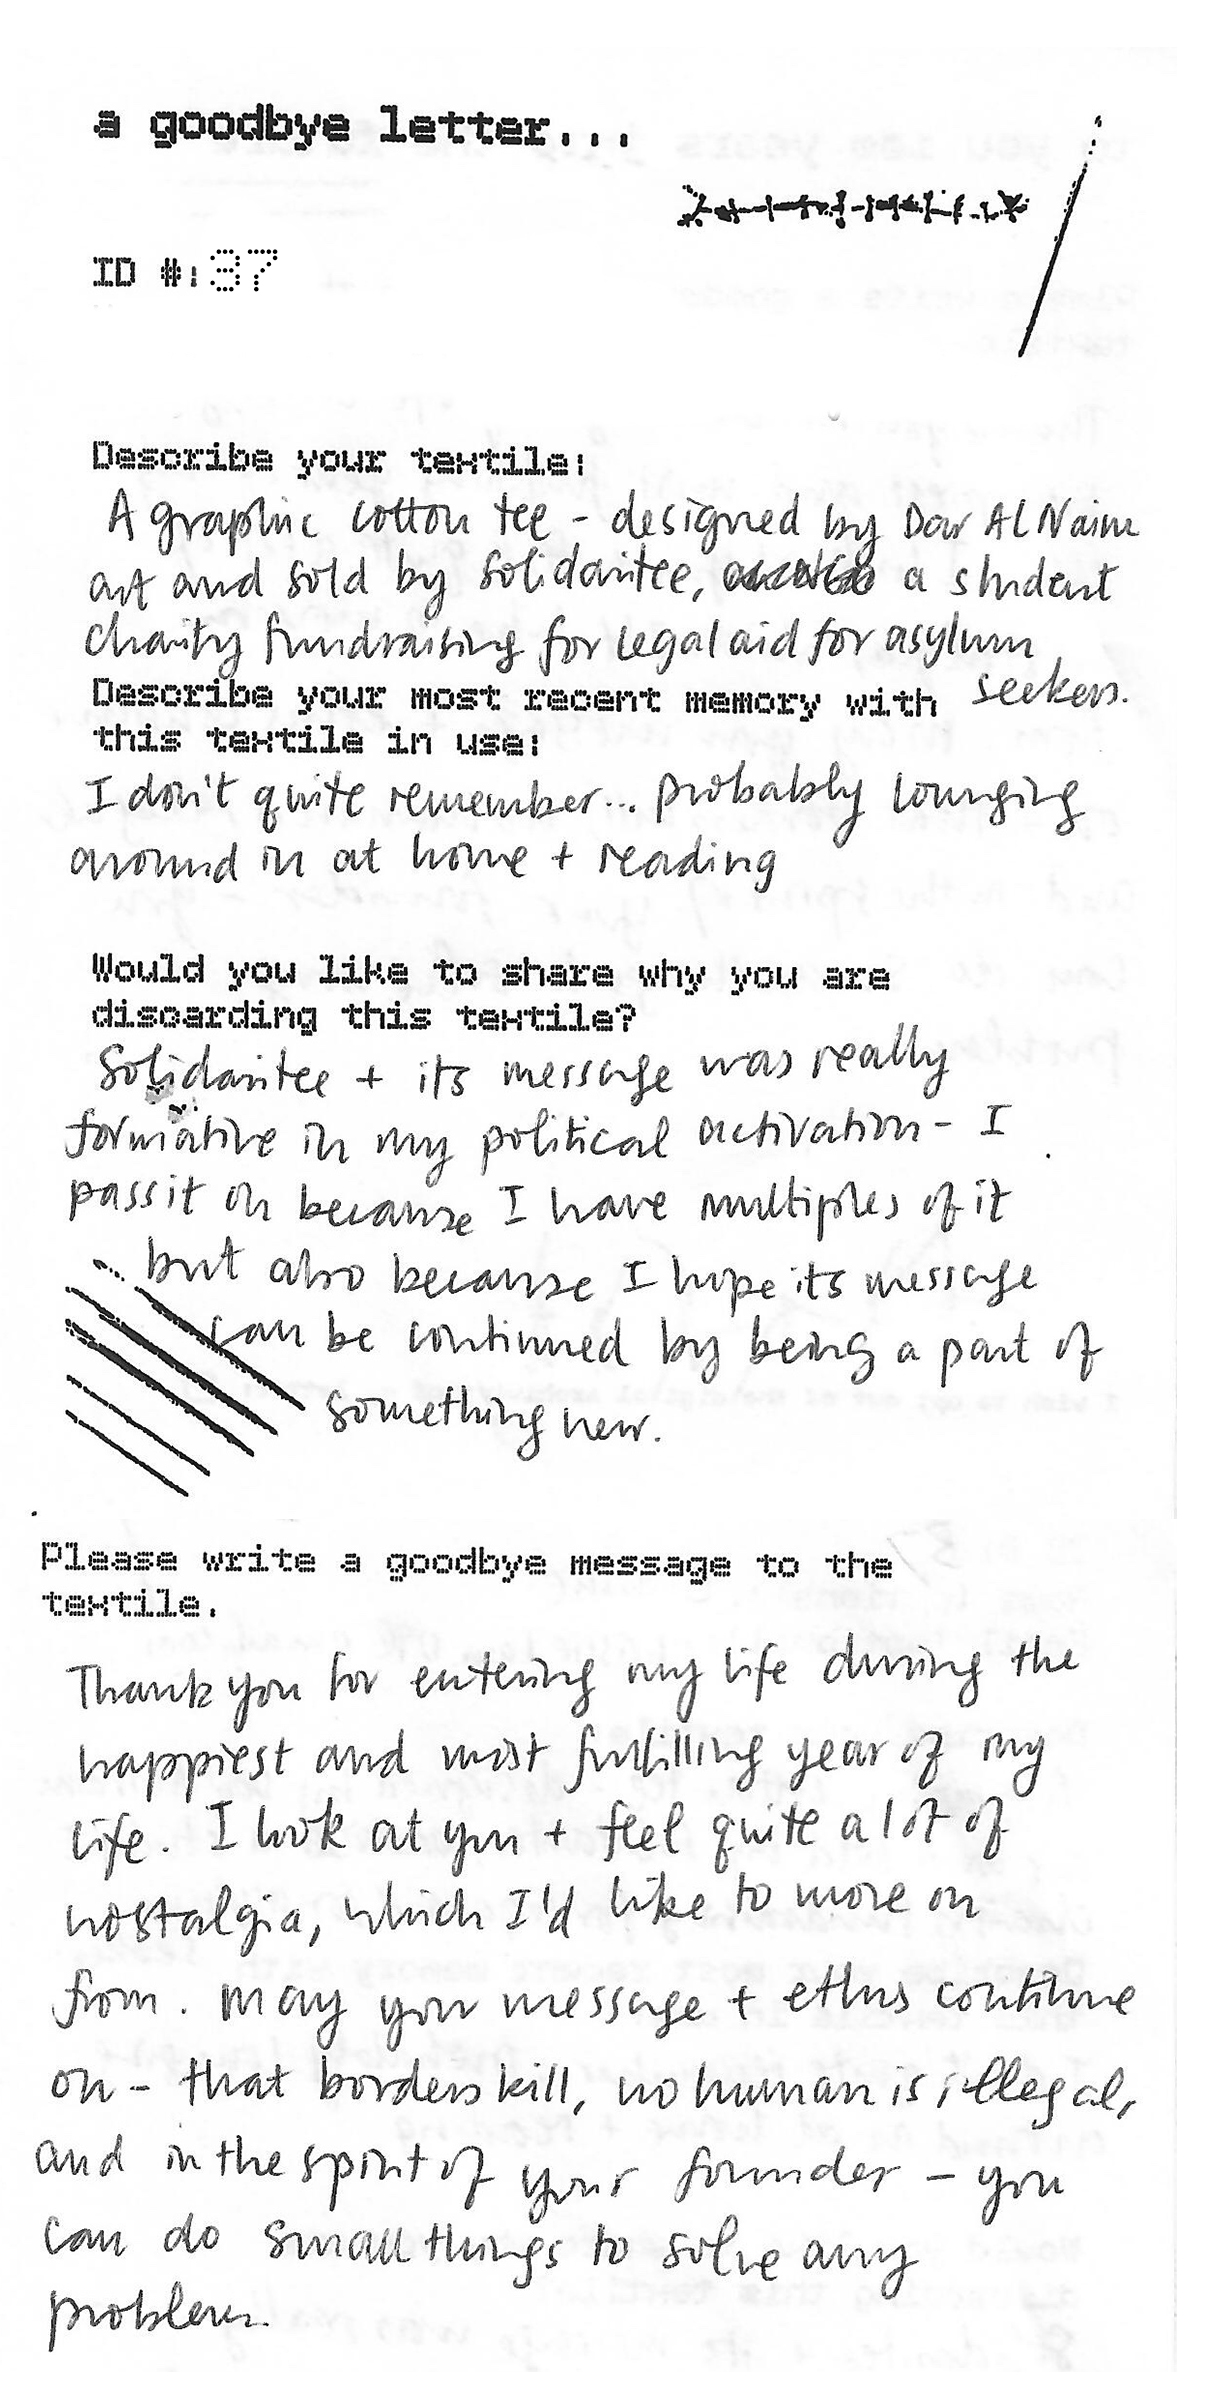 a goodbye letter...
ID #:37
Describe your textile:
A graphic cotton tee - designed by Dar Al Naim
art and sold by Solidaritee, a student
charity fundraising for legal aid for asylum
seekers.
Describe your most recent memory with
this textile in use:
I don't quite remember... probably lounging
around in at home + reading
Would you like to share why you are
discarding this textile?
Solidaritee + its message was really
formative in my political activation - I
pass it on because I have multiples of it
but also because I hope its message
can be continued by being a part of
something new.
Please write a goodbye message to the
textile.
Thank you for entering my life during the
happiest and most fulfilling year of my
life. I look at you + feel quite a lot of
nostalgia, which I'd like to move on
from. May your message + ethos continue
on - that borders kill, no human is illegal,
and in the spirit of your founder - you
can do small things to solve any
problem.